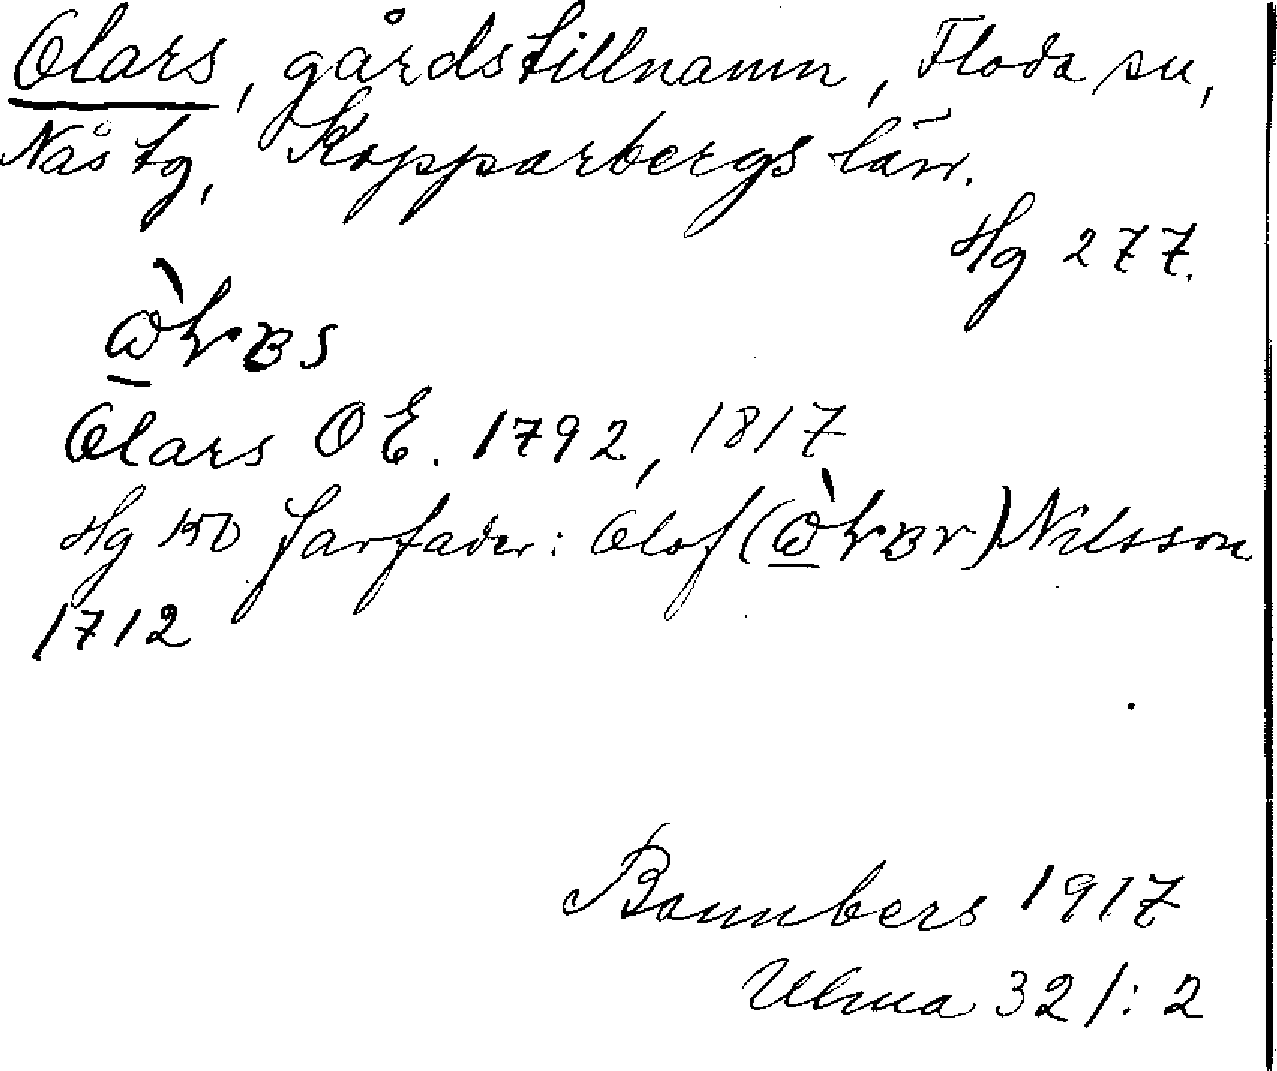 Olars, gårdstillnamn, Floda sn,
Nås tg, Kopparbergs län.
Hg 277.
Olars OE. 1792, 1817
Hg 150 farfader: Olof Nilsson
1712
Bannbers 1917
Ulma 321:2